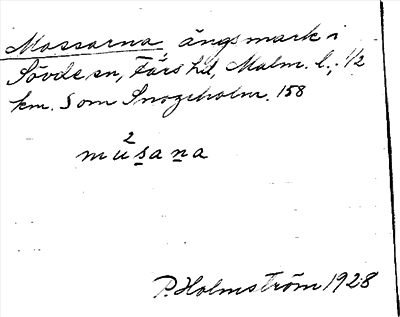 Mossarna, ängsmark i
Sövde sn, Färs hd, Malm. l., 1/2
km. S om Snogeholm. 158
2
mu̇s̱aṉa
P. Holmström 1928